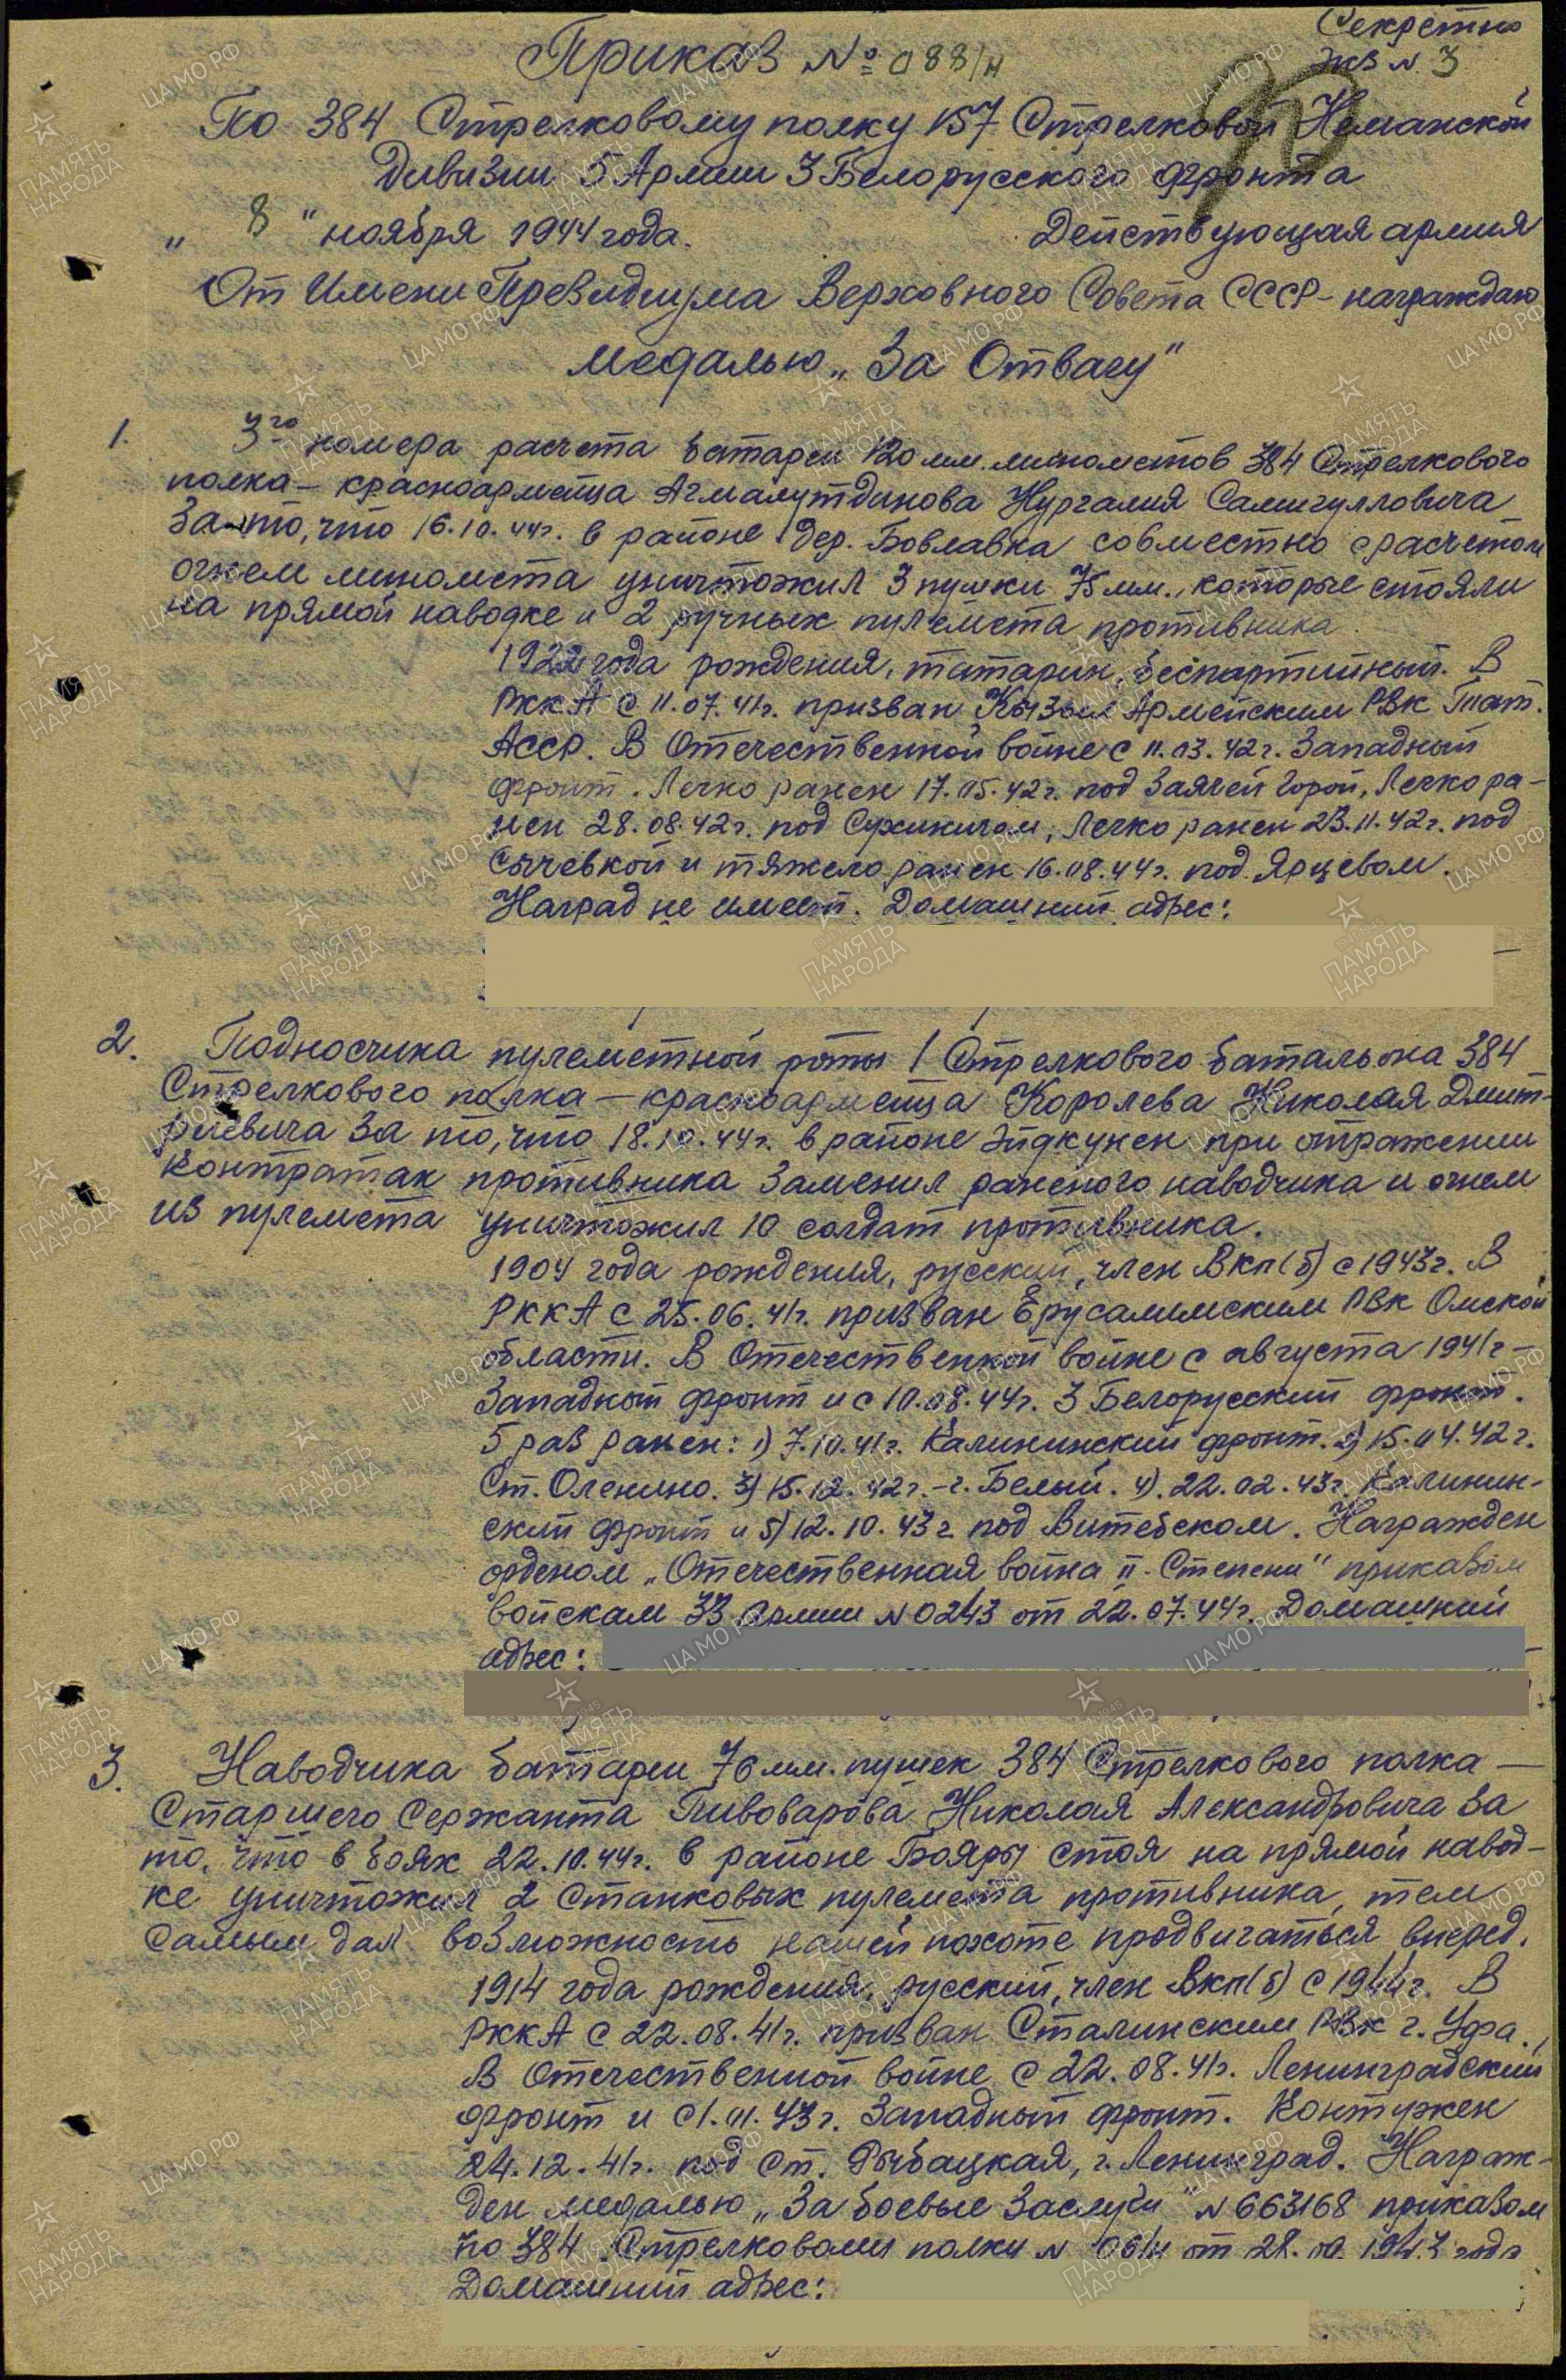 Секретно
Приказ № 088/н
экз N 3
По 384 Стрелковому полку 157 Стрелковой Неманской
Дивизии 5 Армии 3 Белорусского фронта
"8" ноября 1944 года. Действующая армия
От Имени Президиума Верховного Совета СССР - награждаю
медалью „За Отвагу"
1. 3го номера расчета батареи 120 мм. минометов 384 Стрелкового
полка - красноармейца Агмалутдинова Нургалия Самигулловича
За то, что 16.10.44г. в районе дер. Бовлавка совместно с расчетом
огнем миномета уничтожил 3 пушки 75 мм., которые стояли
на прямой наводке и 2 ручных пулемета противника.
1922 года рождения, татарин, беспартийный. В
РККА с 11.07.41г. призван Кызыл Армейским РВК Тат.
АССР. В Отечественной войне с 11.03.42г. Западный
фронт. Легко ранен 17.05.42г. под Заячей Горой, Легко ра-
нен 28.08.42г. под Сухиничам, Легко ранен 23.11.42г. под
Сычевкой и тяжело ранен 16.08.44г. под Ярцевом.
Наград не имеет. Домашний адрес:
2. Подносчика пулеметной роты 1 Стрелкового батальона 384
Стрелкового полка - красноармейца Королева Николая Дмит-
риевича За то, что 18.10.44г. в районе Эйдкунен при отражении
контратак противника заменил раненого наводчика и огнем
из пулемета уничтожил 10 солдат противника.
1904 года рождения, русский, член ВКП(б) с 1943г. В
РККА с 25.06.41г. призван Ерусалимским РВК Омской
области. В Отечественной войне с августа 1941г -
Западный фронт и с 10.08.44г. 3 Белорусский фронт.
5 раз ранен: 1) 7.10.41г. Калининский фронт. 2) 15.04.42г.
Ст. Оленино. 3) 15.12.42г. - г. Белый. 4). 22.02.43г. Калинин-
ский фронт и 5) 12.10.43г под Витебском. Награжден
орденом „Отечественная война II - Степени" приказом
войскам 33 Армии N 0243 от 22.07.44г. Домашний
адрес:
3. Наводчика батареи 76 мм. пушек 384 Стрелкового полка -
Старшего Сержанта Пивоварова Николая Александровича За
то, что в боях 22.10.44г. в районе Бояры стоя на прямой навод-
ке уничтожил 2 станковых пулемета противника, тем
самым дал возможность нашей пехоте продвигаться вперед.
1914 года рождения, русский, член ВКП(б) с 1944г. В
РККА с 22.08.41г. призван Сталинским РВК г. Уфа.
В Отечественной войне с 22.08.41г. Ленинградский
фронт и с 1. 43г. Западный фронт. Контужен
24.12.41г. под ст. Рыбацкая, г. Ленинград. Награж-
ден медалью „За боевые Заслуги" N 663168 приказом
по 384 Стрелковому полку N 06/н от 28. 1943 года
Домашний адрес: